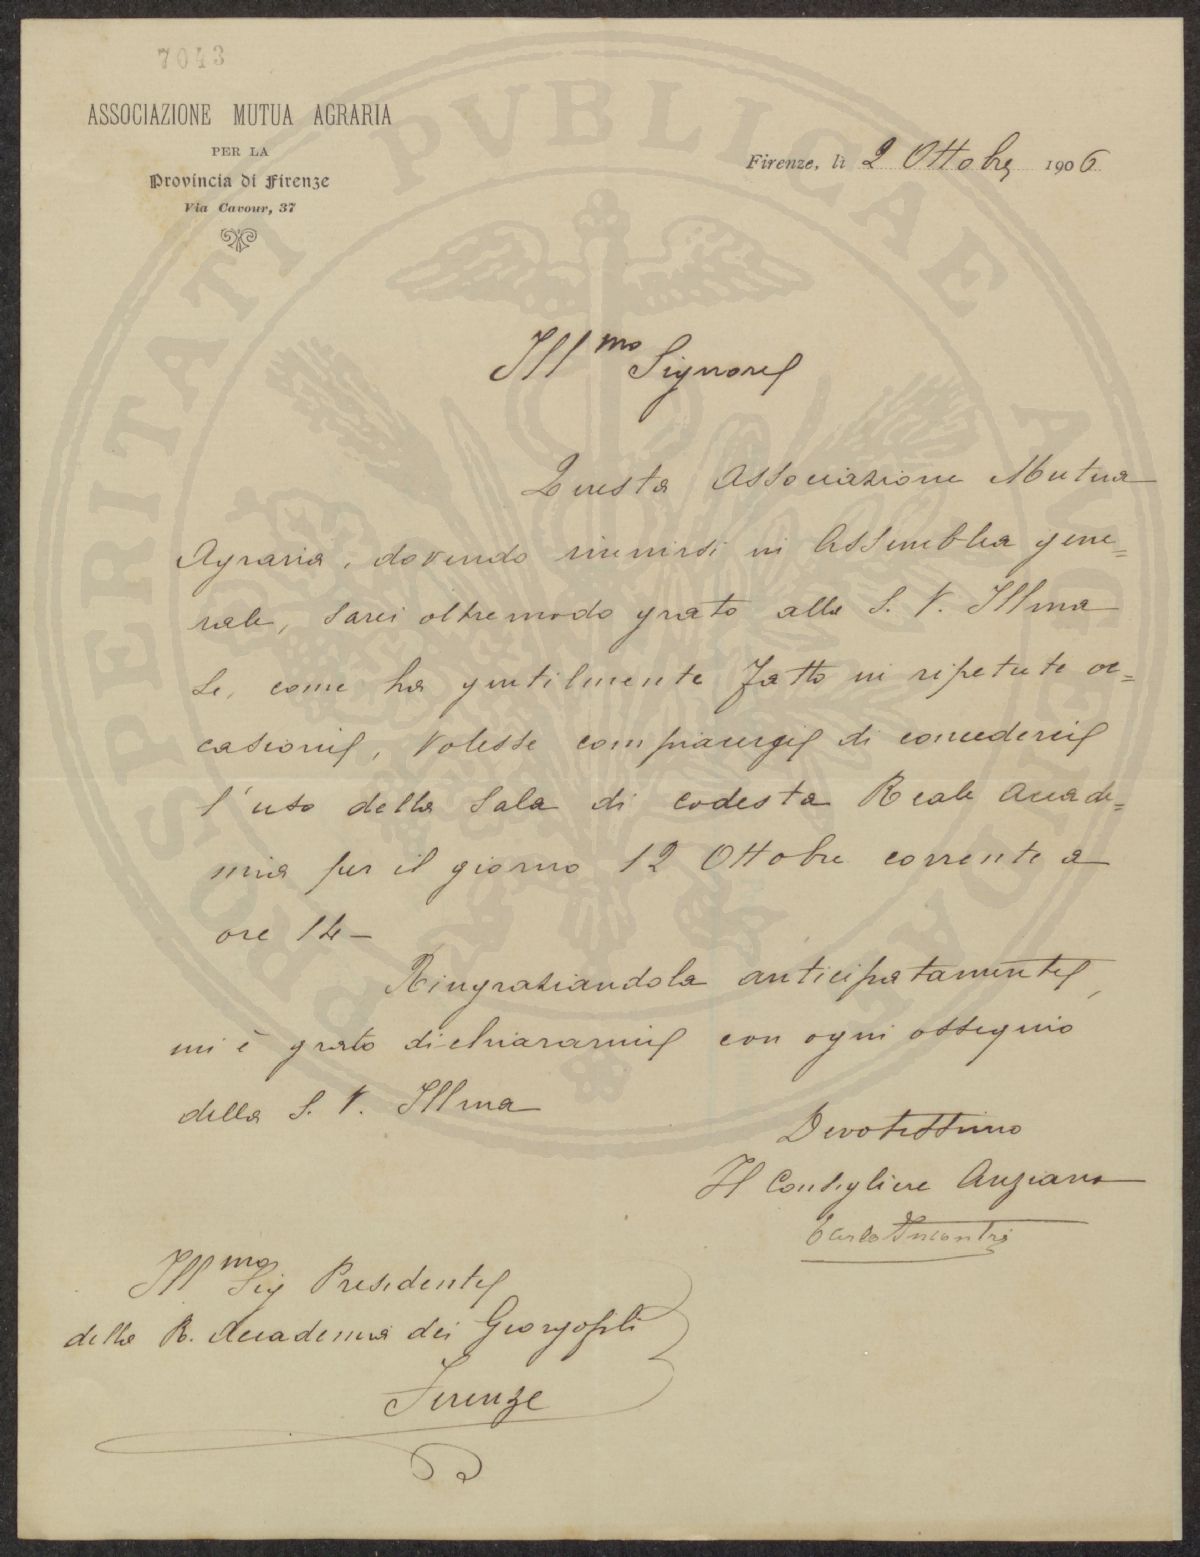 7043
ASSOCIAZIONE MUTUA AGRARIA
PER LA
Provincia di Firenze
Via Cavour, 37
Firenze, lì 2 Ottobre 1906
Ill mo Signore
Questa Associazione Mutua
Agraria, dovendo riunirsi in Assemblea gene=
rale, sarei oltremodo grato alla S. V. Illma
se, come ha gentilmente fatto in ripetute oc=
casioni, volesse compiacersi di concedermi
l'uso della Sala di codesta Reale Accade=
mia per il giorno 12 Ottobre corrente a
ore 14 –
Ringraziandola anticipatamente,
mi è grato dichiararmi con ogni ossequio
della S. V. Illma
Devotissimo
Il Consigliere Anziano
Carlo Incontri
Ill mo Sig Presidente
della R. Accademia dei Georgofili
Firenze
PROSPERITATI PVBLICAE AVGENDAE